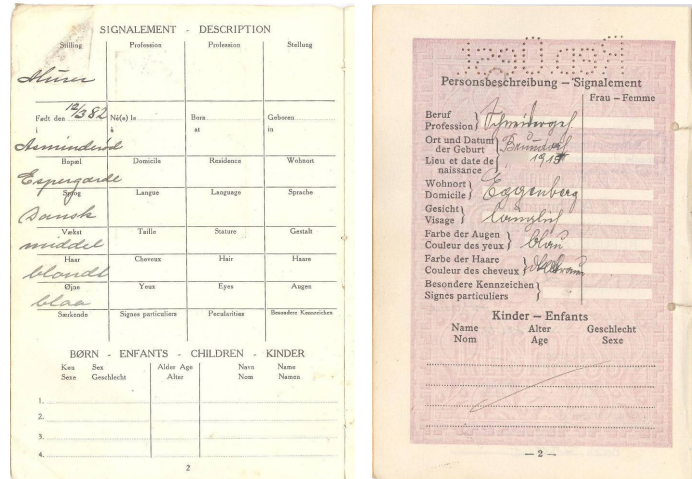 SIGNALEMENT - DESCRIPTION
Stilling Profession Profession Stellung
Murer
Født den 12/3 82 Né(e) le Born Geboren
i à at in
Asminderød
Bopæl Domicile Residence Wohnort
Espergærde
Sprog Langue Language Sprache
Dansk
Vækst Taille Stature Gestalt
middel
Haar Cheveux Hair Haare
blondt
Øjne Yeux Eyes Augen
blaa
Særkende Signes particuliers Pecularities Besondere Kennzeichen
BØRN - ENFANTS - CHILDREN - KINDER
Køn Sex Alder Age Navn Name
Sexe Geschlecht Alter Nom Namen
1.
2.
3.
4.
2
Personsbeschreibung — Signalement
Frau — Femme
Beruf
Profession
Ort und Datum
der Geburt
Lieu et date de
naissance
Wohnort
Domicile Eggenberg
Gesicht
Visage länglich
Farbe der Augen
Couleur des yeux blau
Farbe der Haare
Couleur des cheveux
Besondere Kennzeichen
Signes particuliers
Kinder — Enfants
Name Alter Geschlecht
Nom Age Sexe
— 2 —